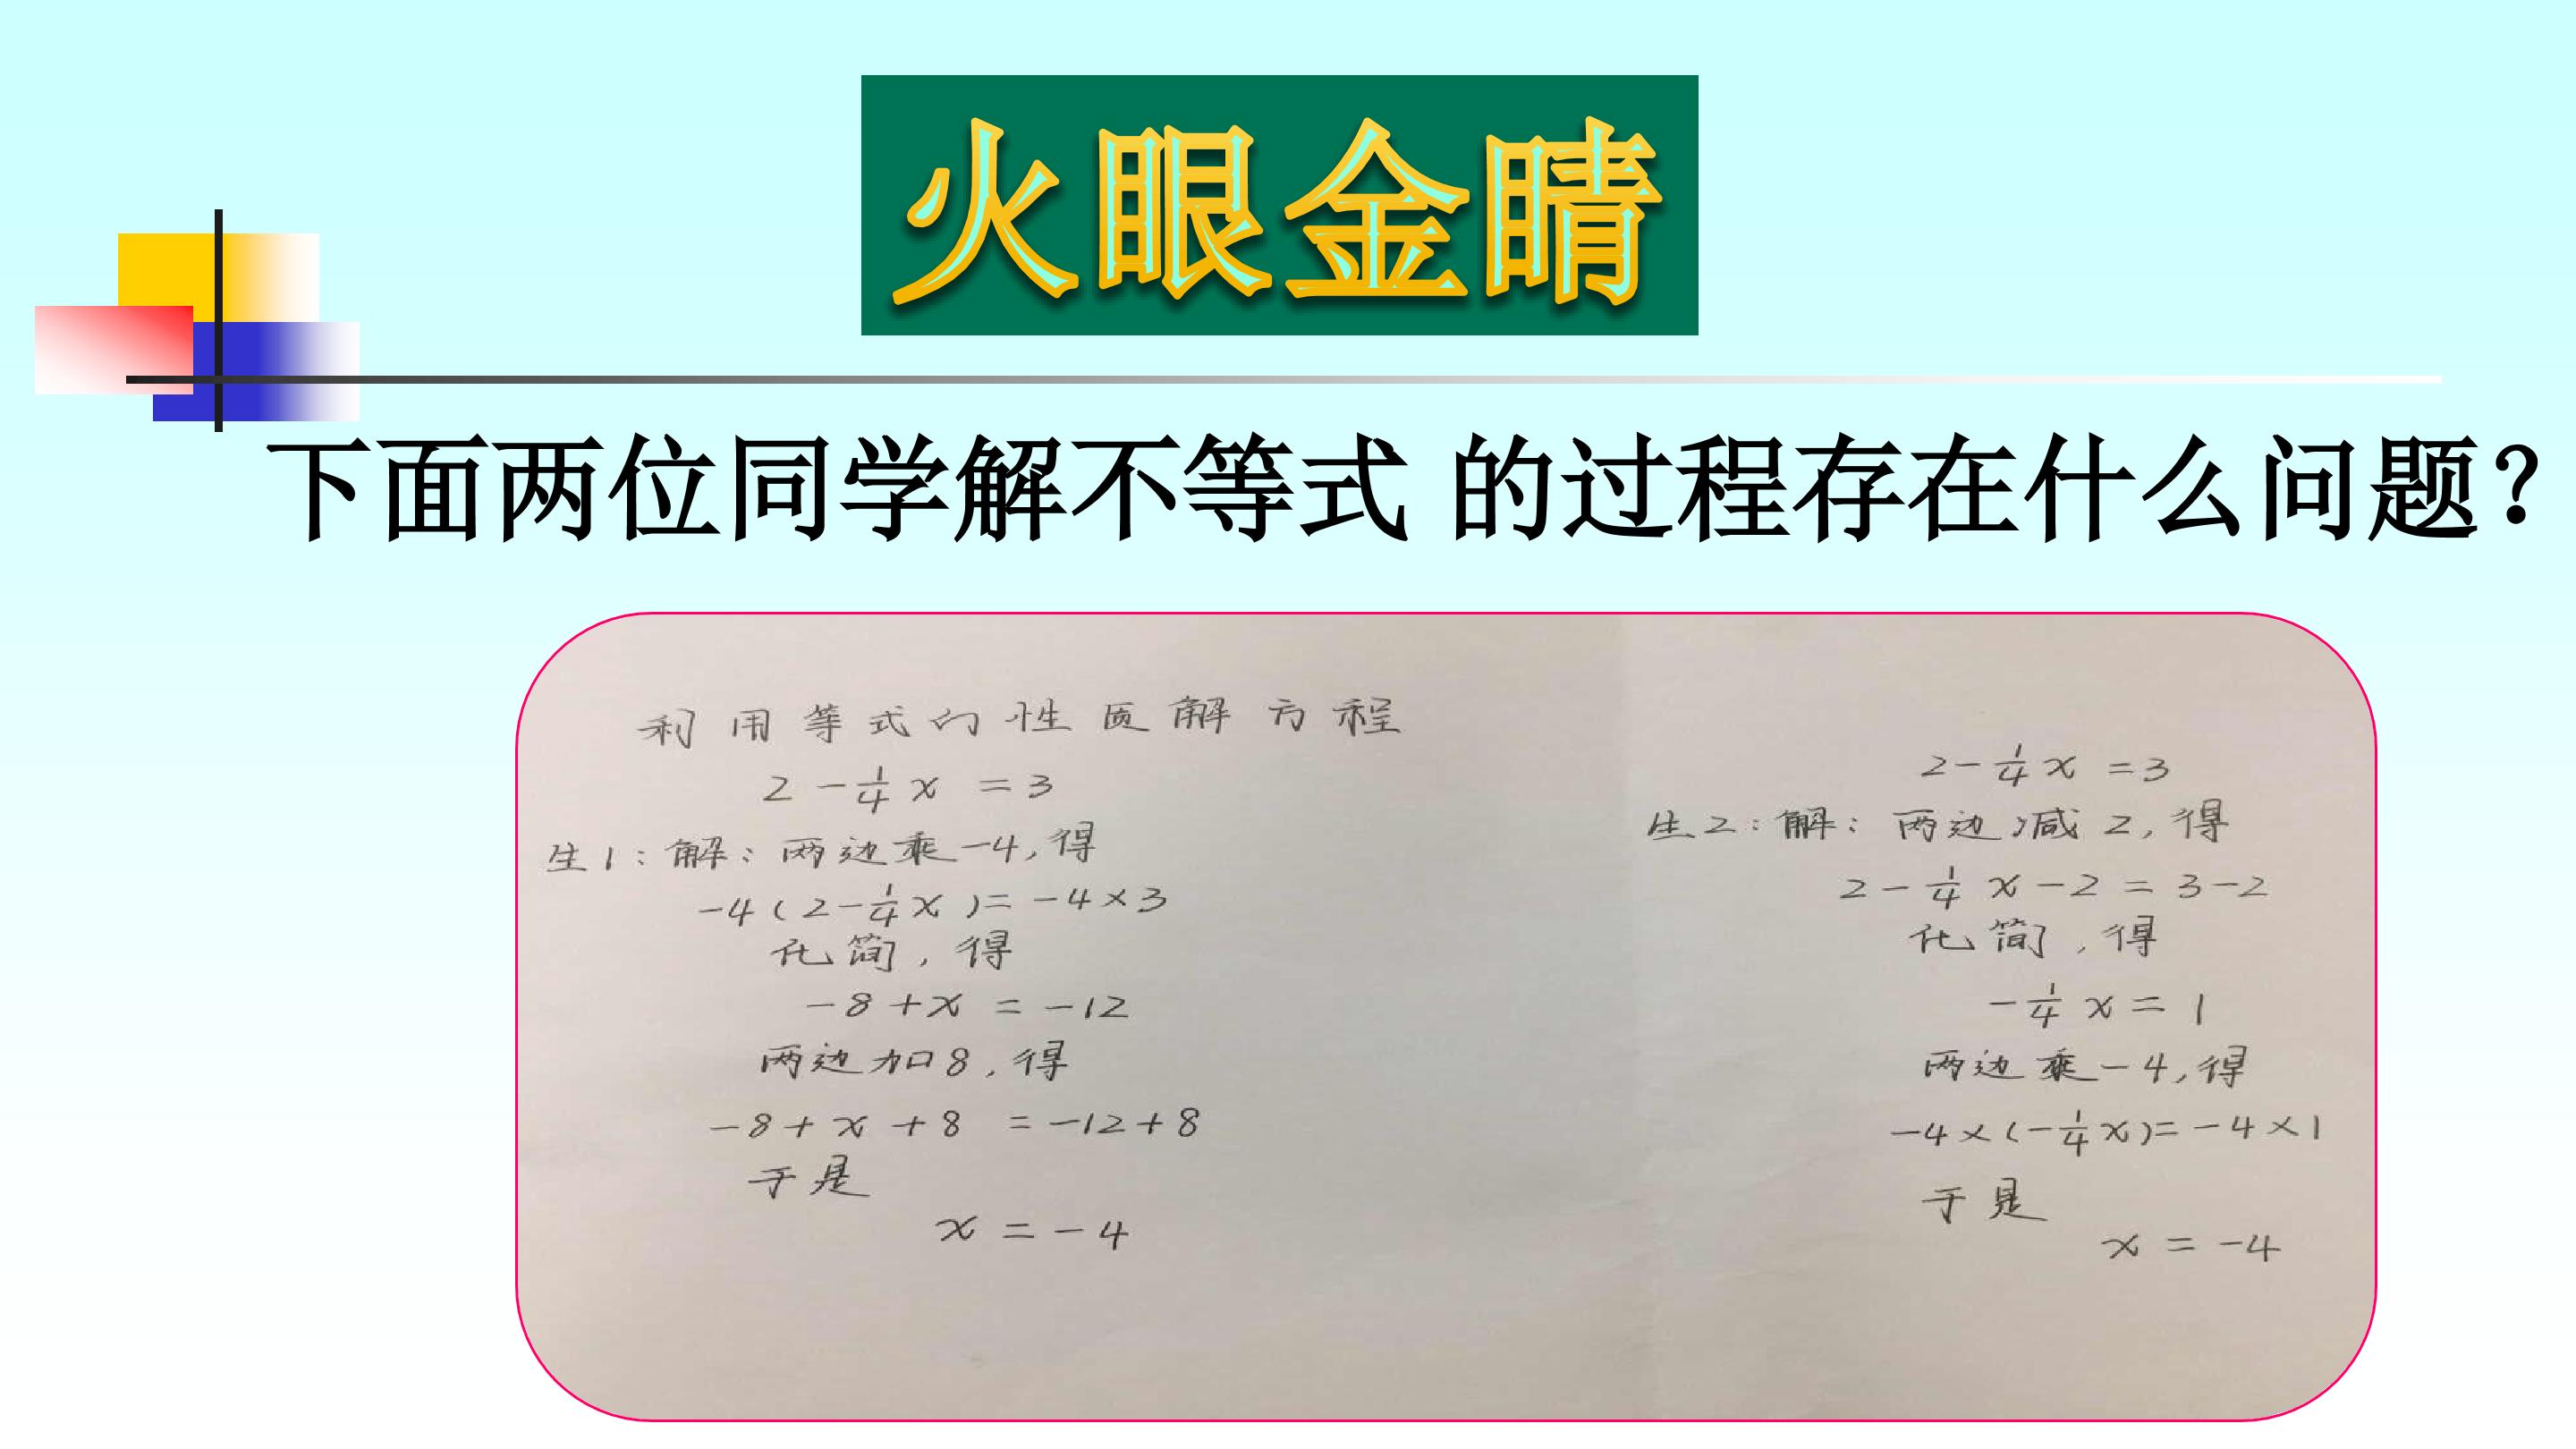 火眼金睛
下面两位同学解不等式 的过程存在什么问题?
利用等式的性质解方程
2-1/4x=3
生1:解:两边乘-4,得
-4(2-1/4x)=-4×3
化简,得
-8+x=-12
两边加8,得
-8+x+8=-12+8
于是
x=-4
2-1/4x=3
生2:解:两边减2,得
2-1/4x-2=3-2
化简,得
-1/4x=1
两边乘-4,得
-4×(-1/4x)=-4×1
于是
x=-4